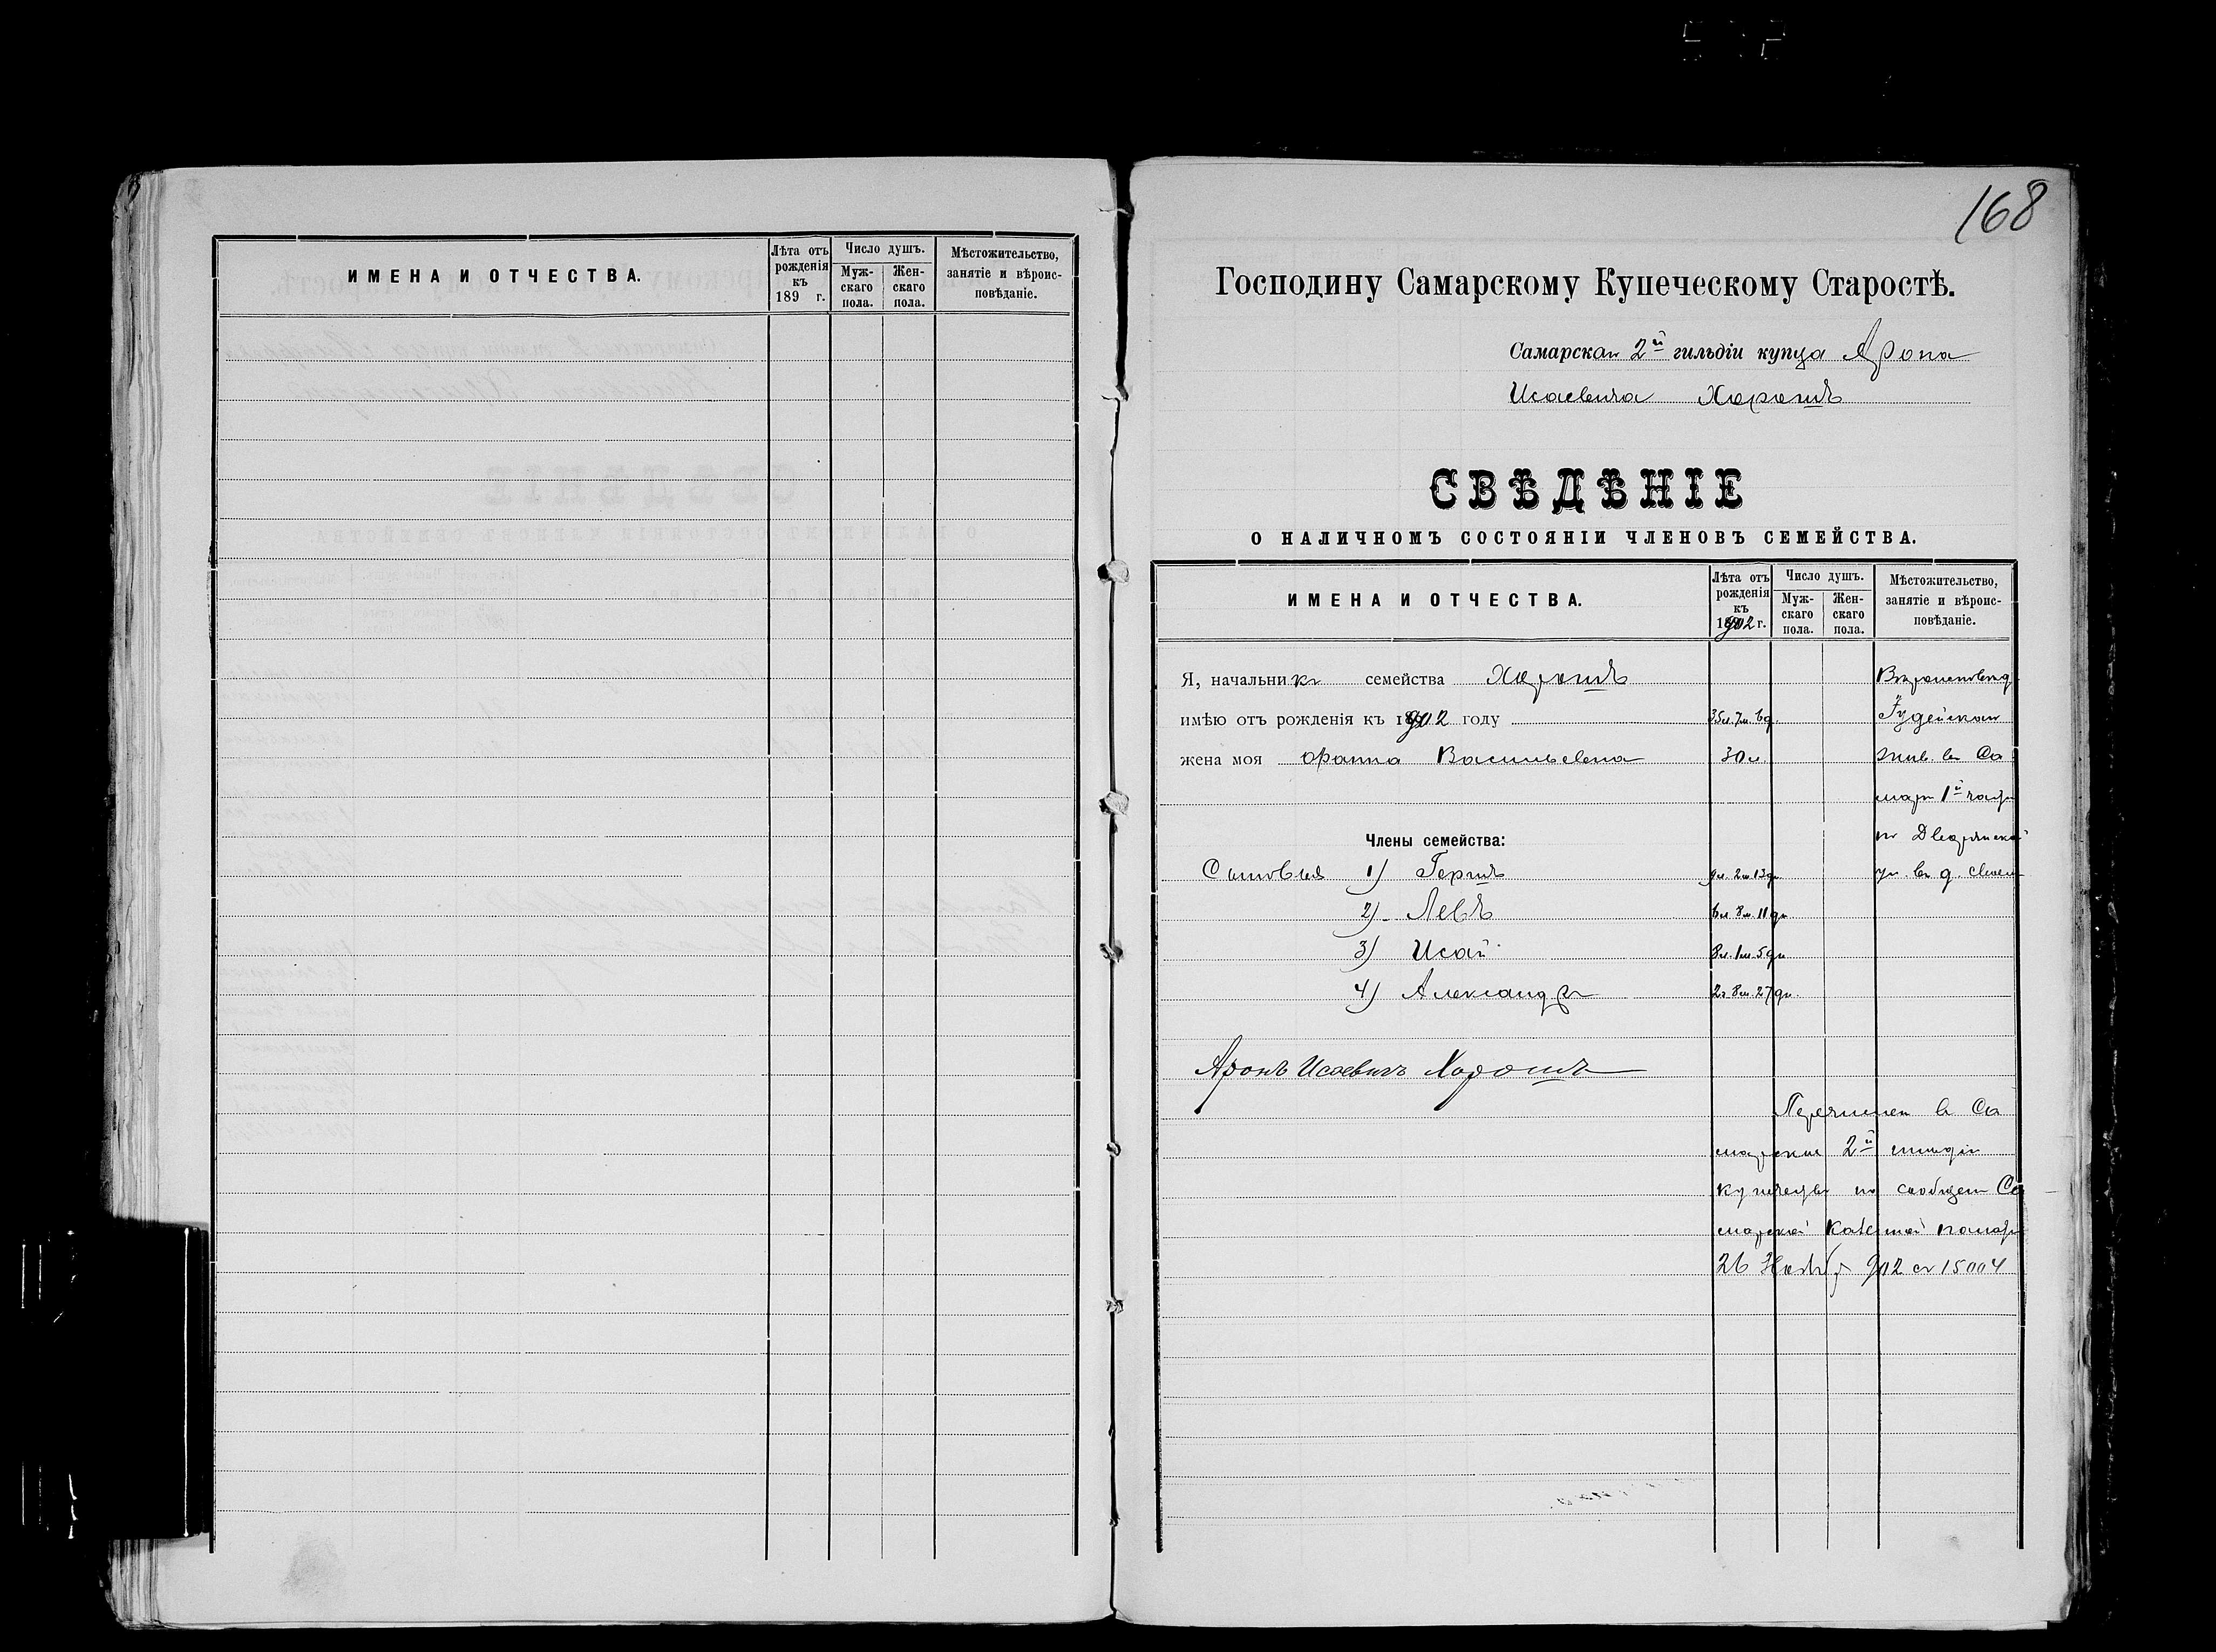 ИМЕНА И ОТЧЕСТВА.
Лѣта отъ рожденія къ 189 г.
Число душъ.
Муж-скаго пола.
Жен-скаго пола.
Мѣстожительство, занятіе и вѣроис-повѣданіе.
168
Господину Самарскому Купеческому Старостѣ.
Самарскаго 2й гильдіи купца Арона
Исаевича Хорошъ
СВѢДѢНІЕ
О НАЛИЧНОМЪ СОСТОЯНІИ ЧЛЕНОВЪ СЕМЕЙСТВА.
ИМЕНА И ОТЧЕСТВА.
Лѣта отъ рожденія къ 1902 г.
Число душъ.
Муж-скаго пола.
Жен-скаго пола.
Мѣстожительство, занятіе и вѣроис-повѣданіе.
Я, начальникъ семейства Хорошъ
имѣю отъ рожденія къ 1902 году 35л. 7м. 6д. Іудейскаго
жена моя Фанна Васильевна 30 л. жив. въ Са
мар 1й част
Члены семейства: по Дворянской
Сыновья 1) Гершъ 9л. 2м 13дн. ул. въ д. своем
2) Левъ 6л. 8м. 11дн
3) Исай 3л. 1м. 5дн
4) Александръ 2г. 8м. 27дн.
Аронъ Исаевичъ Хорошъ
Перечислен в Са
марское 2й гильдіи
купечество по сообщен Са
марской Казенной палаты
26 Ноябр 902 за 15004